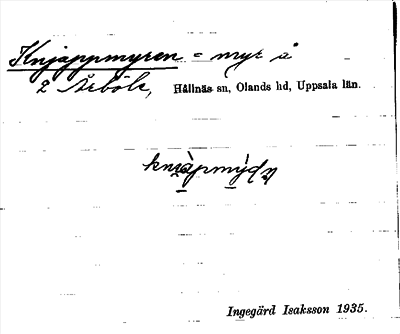 Knjappmyren = myr å
2 Årböle, Hållnäs sn, Olands hd, Uppsala län.
Ingegärd Isaksson 1935.